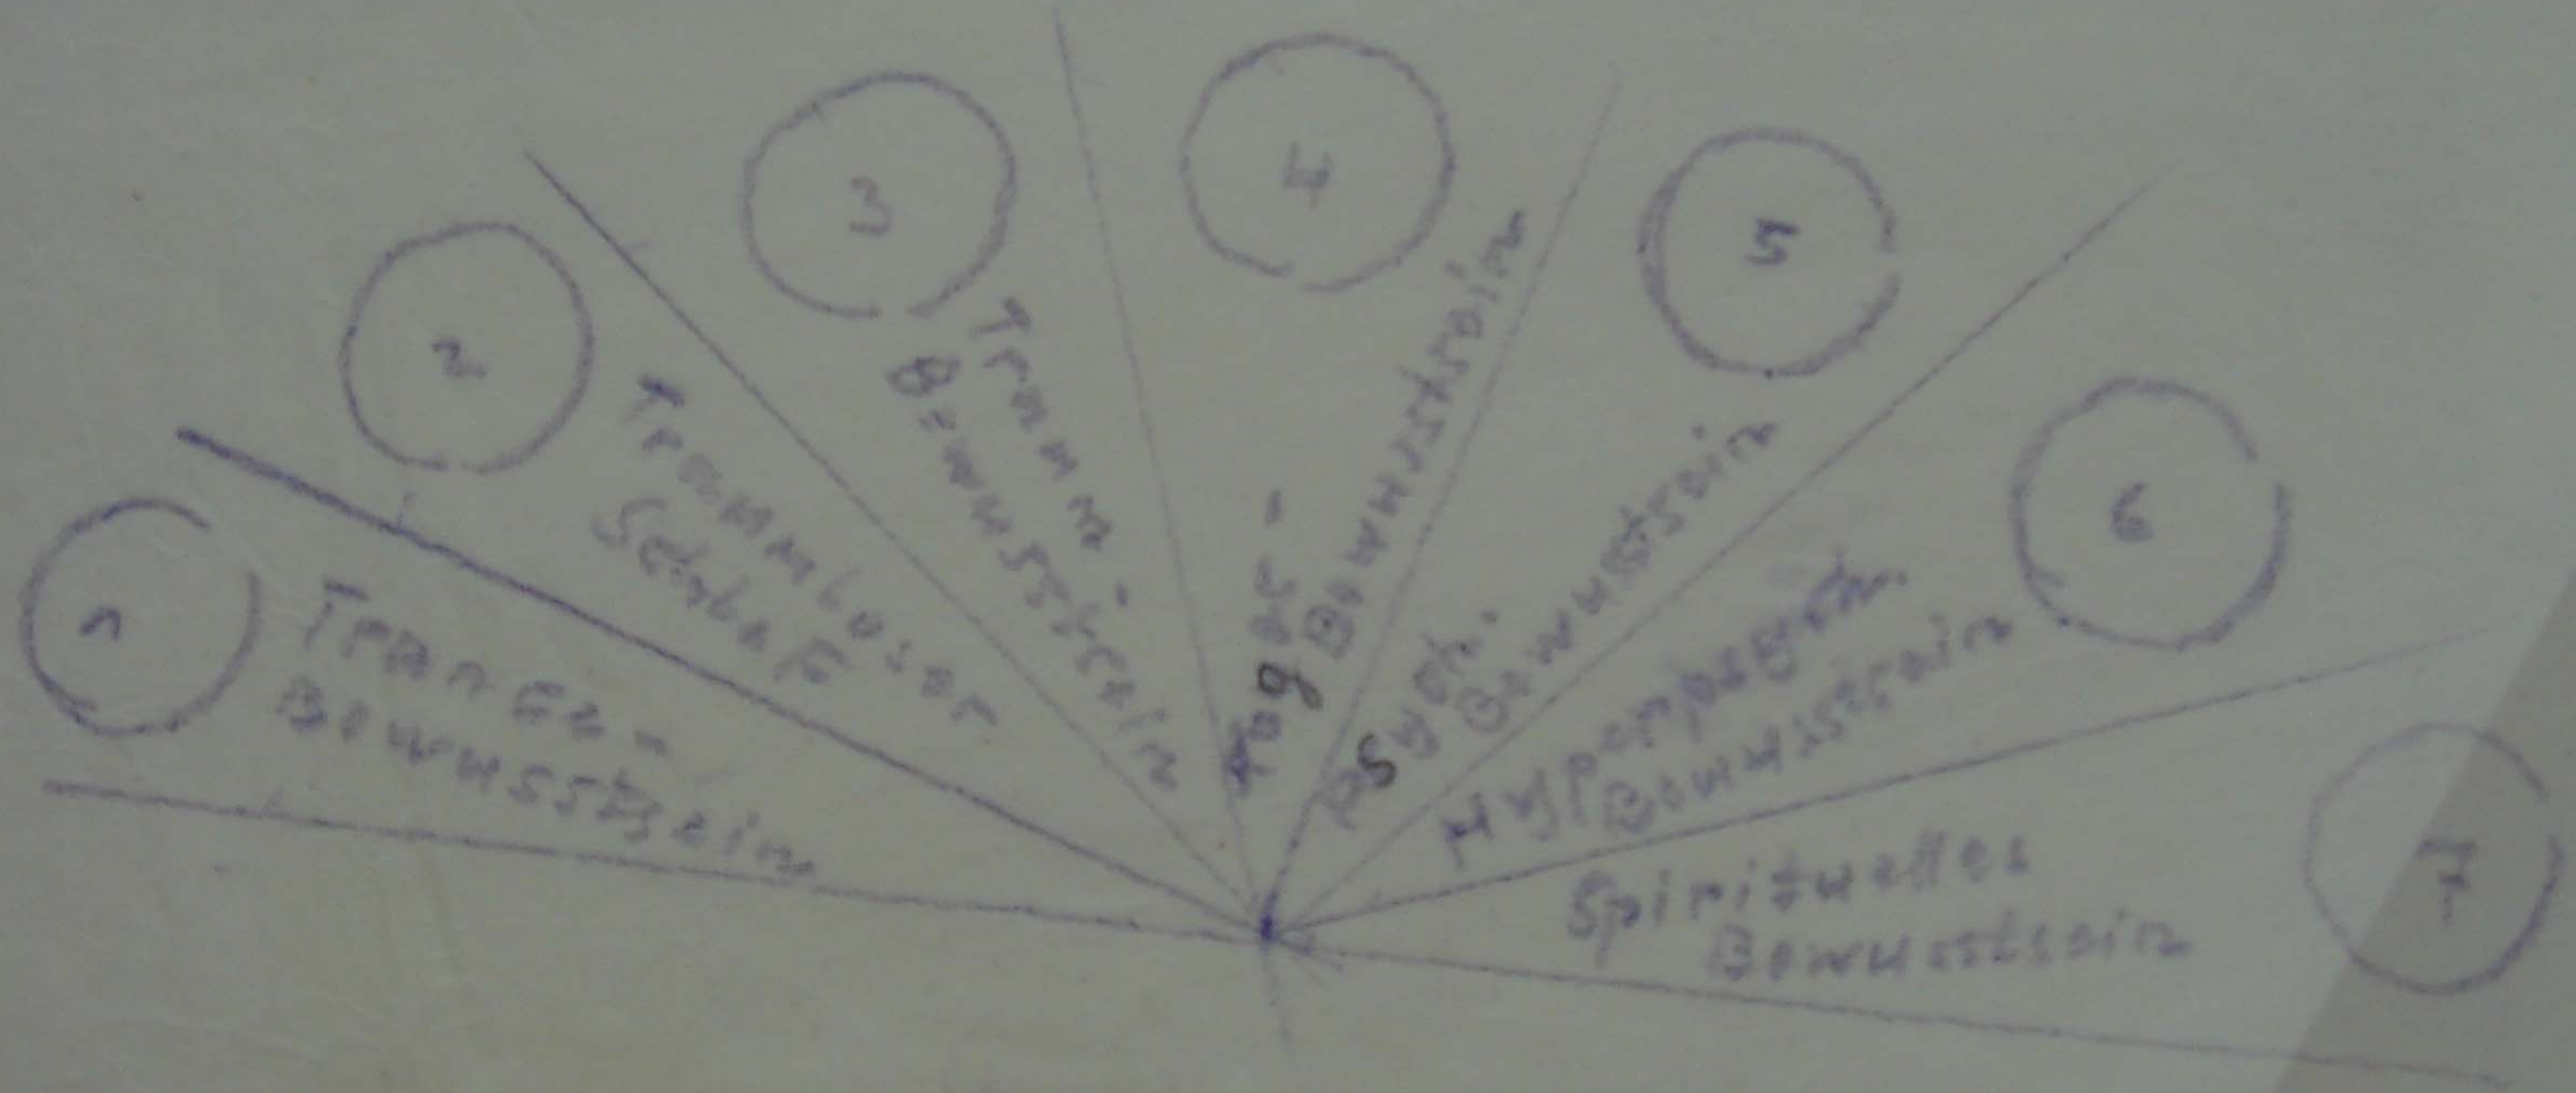 1
Trance-
Bewusstsein
2
Traumloser
Schlaf
3
Traum-
Bewusstsein
4
Tages-
Bewusstsein
5
Psych.
Bewusstsein
6
Bewusstsein
7
Spirituelles
Bewusstsein